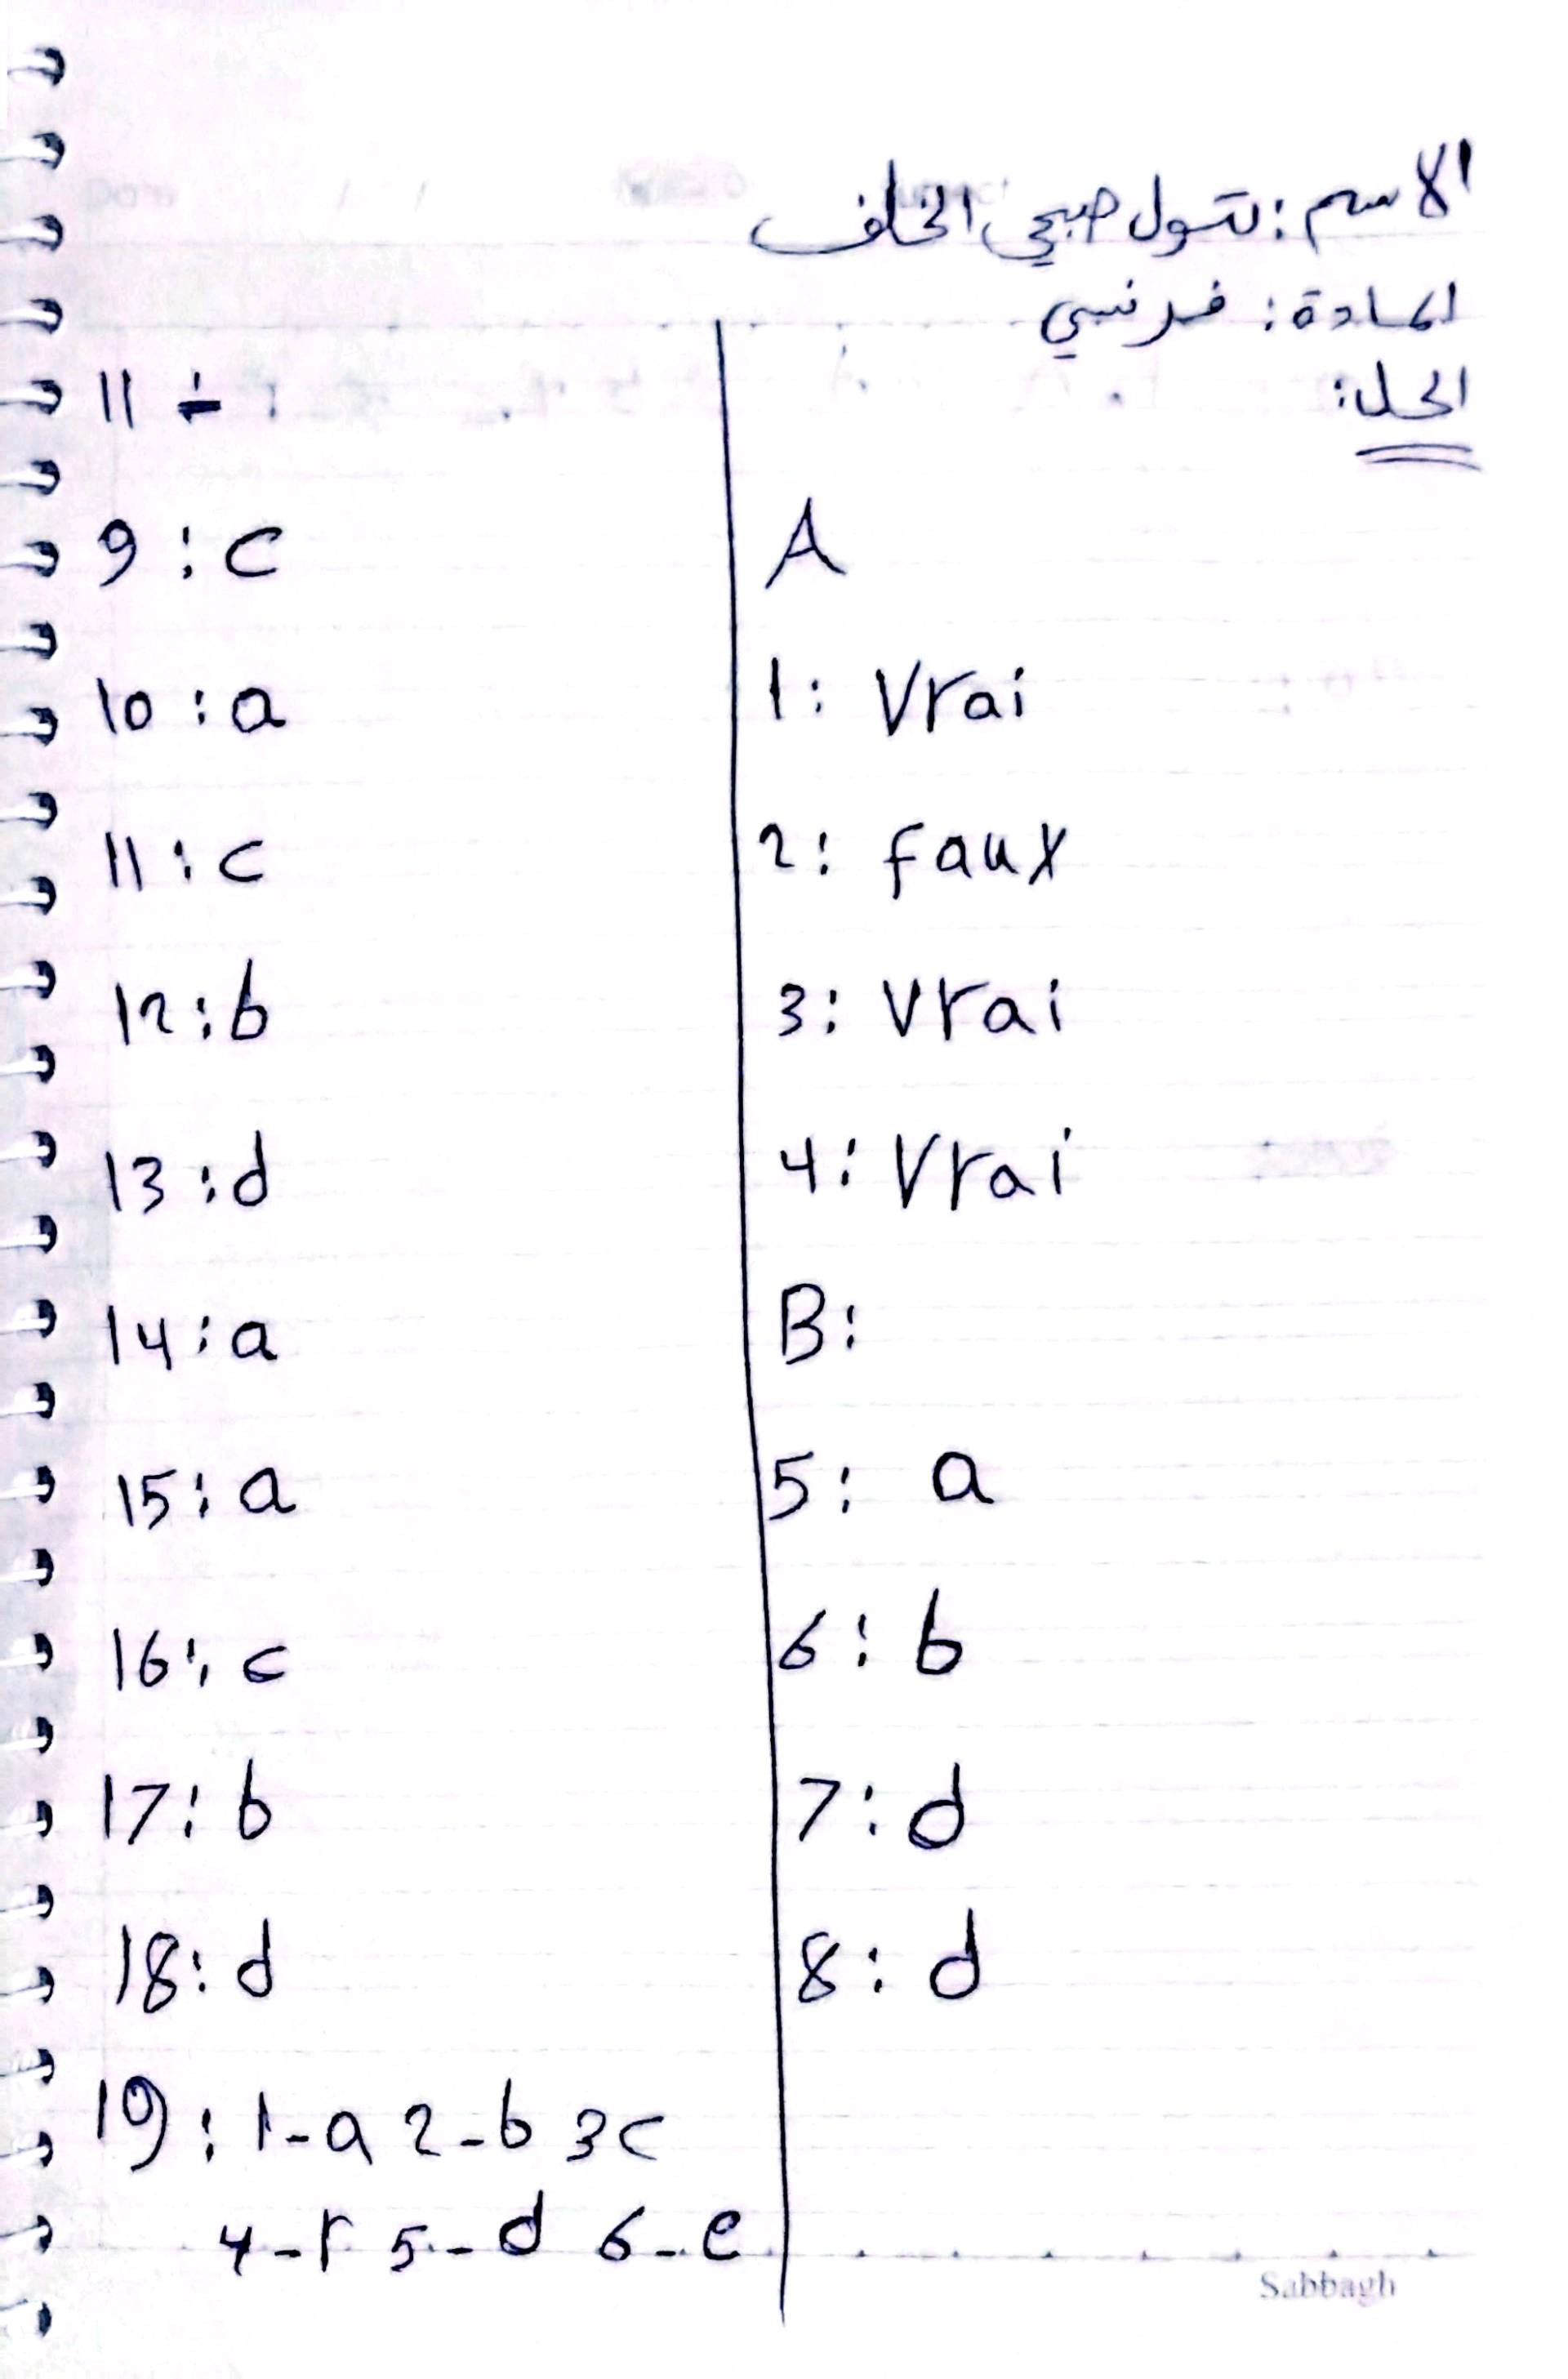 الاسم: بتول صبحي الخلف
المادة: فرنسي
الحل:
A
1: Vrai
2: faux
3: Vrai
4: Vrai
B:
5: a
6: b
7: d
8: d
11
9: c
10: a
11: c
12: b
13: d
14: a
15: a
16: c
17: b
18: d
19: 1-a 2-b 3c
4-r 5-d 6-e
Sabbagh